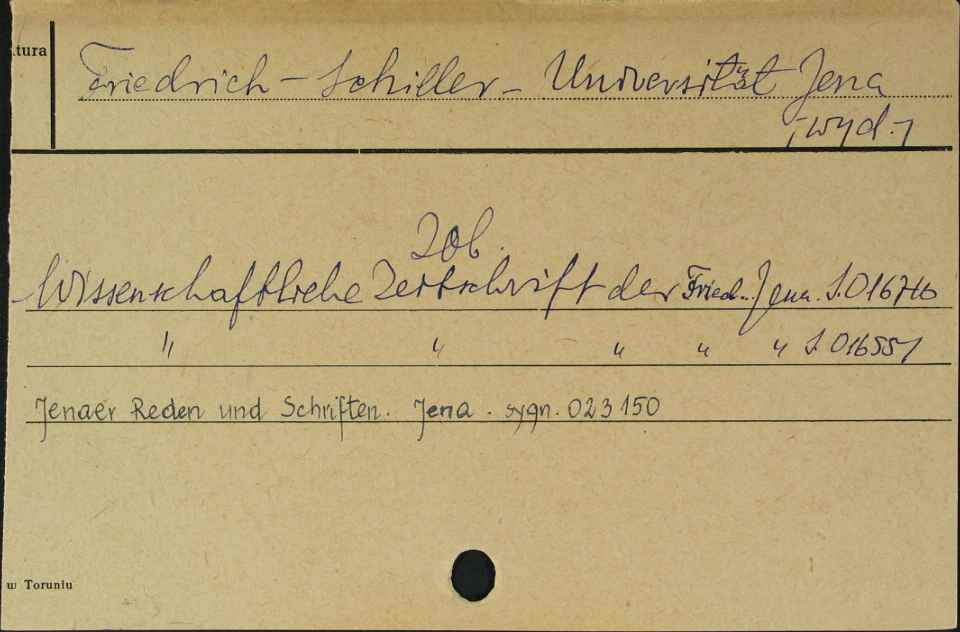 tura
Friedrich-Schiller-Universität Jena
[wyd.]
Zob.
Wissenschaftliche Zeitschrift der Fried.. Jena. S.01676
" " " " " S.016551
Jenaer Reden und Schriften. Jena. sygn. 023150
w Toruniu